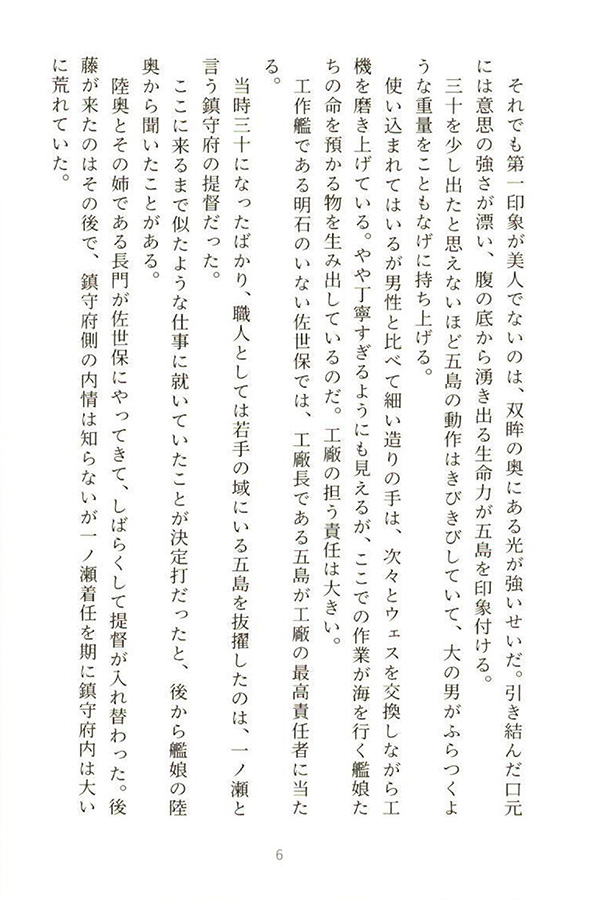 それでも第一印象が美人でないのは、双眸の奥にある光が強いせいだ。引き結んだ口元
には意思の強さが漂い、腹の底から湧き出る生命力が五島を印象付ける。
三十を少し出たと思えないほど五島の動作はきびきびしていて、大の男がふらつくよ
うな重量をこともなげに持ち上げる。
使い込まれてはいるが男性と比べて細い造りの手は、次々とウェスを交換しながら工
機を磨き上げている。やや丁寧すぎるようにも見えるが、ここでの作業が海を行く艦娘た
ちの命を預かる物を生み出しているのだ。工廠の担う責任は大きい。
工作艦である明石のいない佐世保では、工廠長である五島が工廠の最高責任者に当た
る。
当時三十になったばかり、職人としては若手の域にいる五島を抜擢したのは、一ノ瀬と
言う鎮守府の提督だった。
ここに来るまで似たような仕事に就いていたことが決定打だったと、後から艦娘の陸
奥から聞いたことがある。
陸奥とその姉である長門が佐世保にやってきて、しばらくして提督が入れ替わった。後
藤が来たのはその後で、鎮守府側の内情は知らないが一ノ瀬着任を期に鎮守府内は大い
に荒れていた。
6